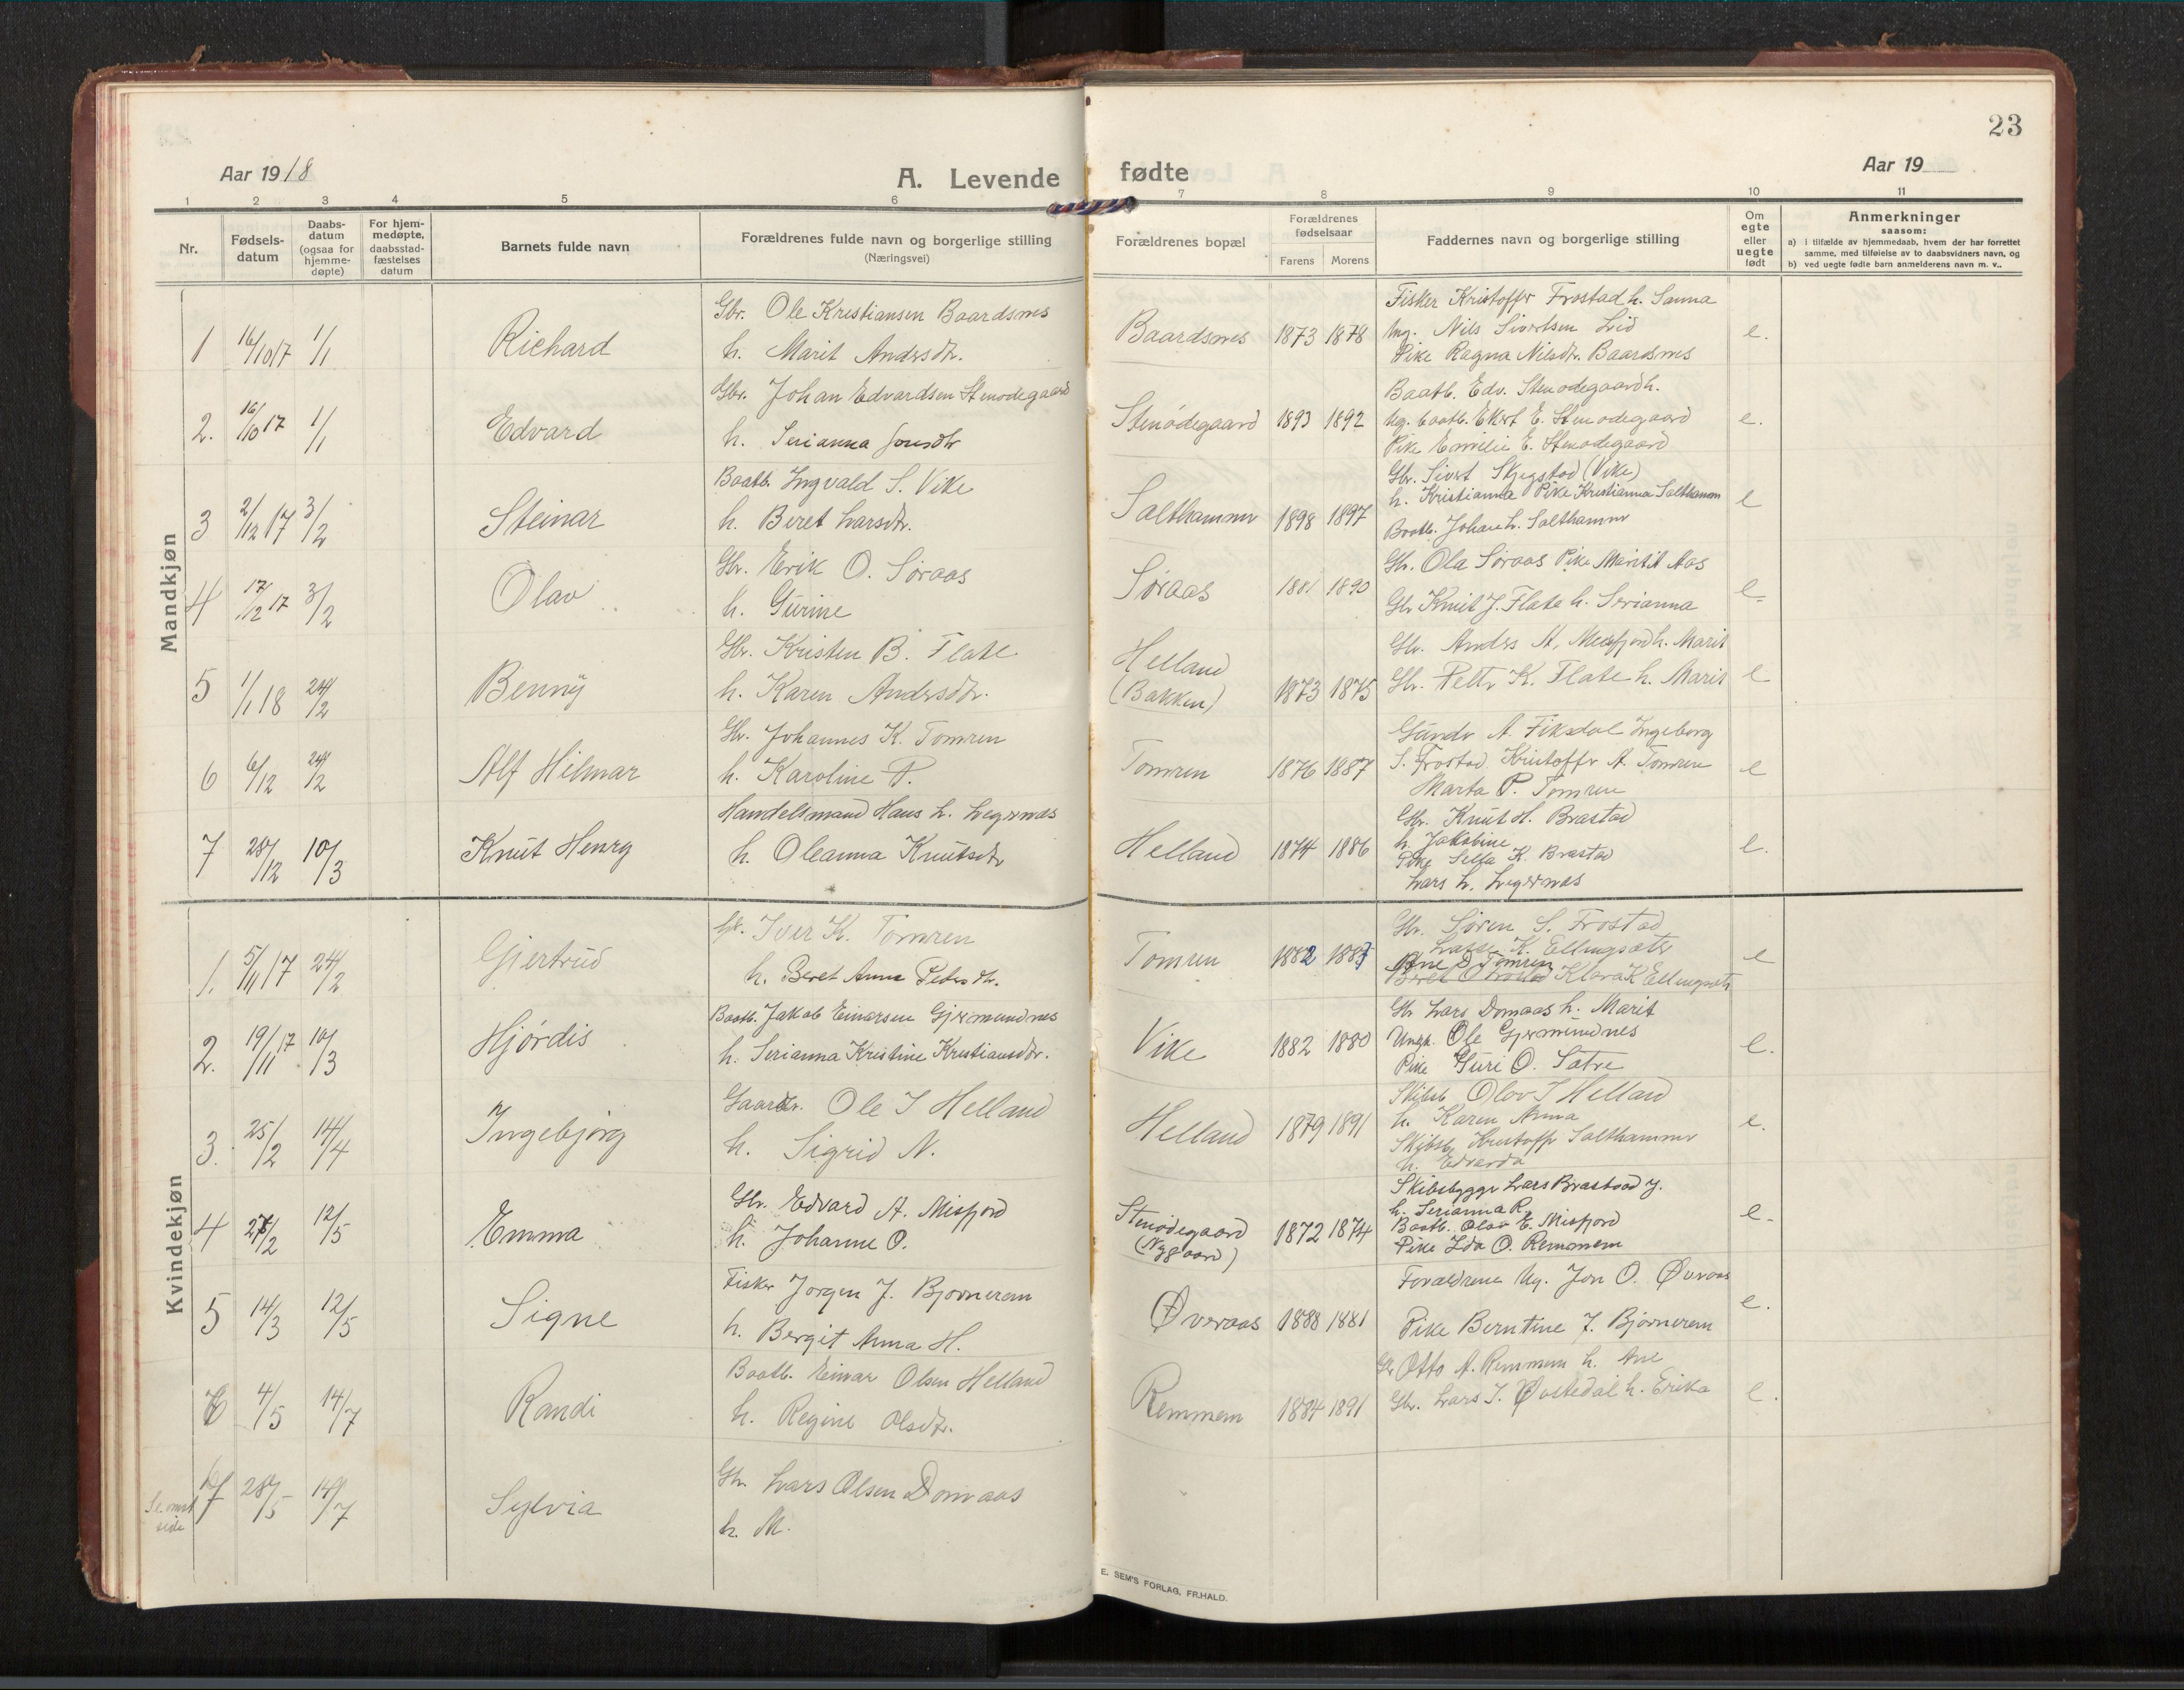 23
Aar 1918
A. Levende fødte
Aar 19
1 2 3 4 5 6 7 8 9 10 11
Nr.
Fødsels-
datum
Daabs-
datum
(ogsaa for
hjemme-
døpte)
For hjem-
medøpte,
daabsstad-
fæstelses
datum
Barnets fulde navn
Forældrenes fulde navn og borgerlige stilling
(Næringsvei)
Forældrenes bopæl
Forældrenes
fødselsaar
Farens Morens
Faddernes navn og borgerlige stilling
Om
egte
eller
uegte
født
Anmerkninger
saasom:
a) i tilfælde av hjemmedaab, hvem der har forrettet
samme, med tilføielse av to daabsvidners navn, og
b) ved uegte fødte barn anmelderens navn m. v..
Mandkjøn
1 16/10 17 1/1 Richard
Gbr. Ole Kristiansen Baardsnes
h. Marit Andrsdtr.
Baardsnes 1873 1878
Fisker Kristoffer Frostad h. Sanna
Ung. Nils Sivertsen Lid
Pike Ragna Nilsdtr. Baardsnes
e.
2. 16/10 17 1/1 Edvard
Gbr. Johan Edvardsen Stenødegaard
h. Serianna Jonsdtr
Stenødegaard 1893 1892
Baatb. Edv. Stenødegaard h.
Ug. baatb. Ekert E. Stenødegaard
Pike Emilie E. Stenødegaard
e.
3 2/12 17 3/2 Steinar
Baatb. Ingvald S. Vike
h. Beret Larsdtr.
Salthammer 1898 1897
Gbr. Sivert Skjegstad (Vike)
h. Kristianna Pike Kristianna Salthamm
Baatb. Johan L. Salthammer
e
4 17/12 17 3/2 Olav
Gbr. Erik O. Søraas
h. Gurine
Søraas 1881 1890
Gbr. Ola Søraas Pike Maritit Aas
Gbr Knut J. Flate h. Serianna
e
5 1/1 18 24/2 Benny
Gbr. Kristen B. Flate
h. Karen Andrsdtr.
Helland
(Bakken) 1873 1875
Gbr. Anders A. Misfjord h. Marit
Gbr. Petter K. Flate h. Marit
e
6 6/12 24/2 Alf Hilmar
Gbr. Johannes K. Tomren
h. Karoline P.
Tomren 1876 1887
Gunder A. Fiksdal Ingeborg
S. Frostad Kristoffer A. Tomren
Marta P. Tomren
e
7 28/12 10/3 Knut Henry
Handelsmand Hans L. Legernæs
h. Oleanna Knutsdtr
Helland 1874 1886
Gbr. Knut H. Brastad
h. Jakobine
Pike Sella K. Brastad
Lars L. Legernæs
e.
Kvindekjøn
1. 5/11 17 24/2 Gjertrud
Gbr. Iver K. Tomren
h. Beret Anna Petersdtr.
Tomren 1882 1887
Gbr. Søren S. Frostad
Lasse K. Ellingsæter
Ane P Tomren
Beret O Frostad Klara K Ellingsæter
e
2. 19/11 17 10/3 Hjørdis
Baatb. Jakob Einarsen Gjermundnes
h. Serianna Kristine Kristiansdtr.
Vike 1882 1880
Gbr Lars Domaas h. Marit
Ungk. Ole Gjermundnes
Pike Guri O. Sætre
e.
3. 25/2 14/4 Ingebjørg
Gaardbr. Ole I Helland
h. Sigrid N.
Helland 1879 1891
Skibsb Olov I Helland
h. Karen Anna
Skibsb Kristoffer Salthammer
h. Edvarda
e.
4 27/2 12/5 Emma
Gbr. Edvard A. Misfjord
h. Johanne O.
Stenødegaard
(Nygaard) 1872 1874
Skibsbygger Lars Brastad J.
h. Serianna R.
Baatb. Olav E. Misfjord
Pike Ida O. Remmem
e.
5 14/3 12/5 Signe
Fisker Jørgen J. Bjørnerem
h. Bergit Anna H.
Øveraas 1888 1881
Forældrene Ug. Jon O. Øveraas
Pike Berntine J. Bjørnerem
e.
6 4/5 14/7 Randi
Baatb. Einar Olsen Helland
h. Regine Olsdtr.
Remmem 1884 1891
Gbr Otto A. Remmem h. Ane
Gbr. Lars I. Øvstedal h. Erika
e.
7 28/5 14/7 Sylvia
Se næste
side
Gbr. Lars Olsen Domaas
h. M.
E. SEM'S FORLAG, FR.HALD.